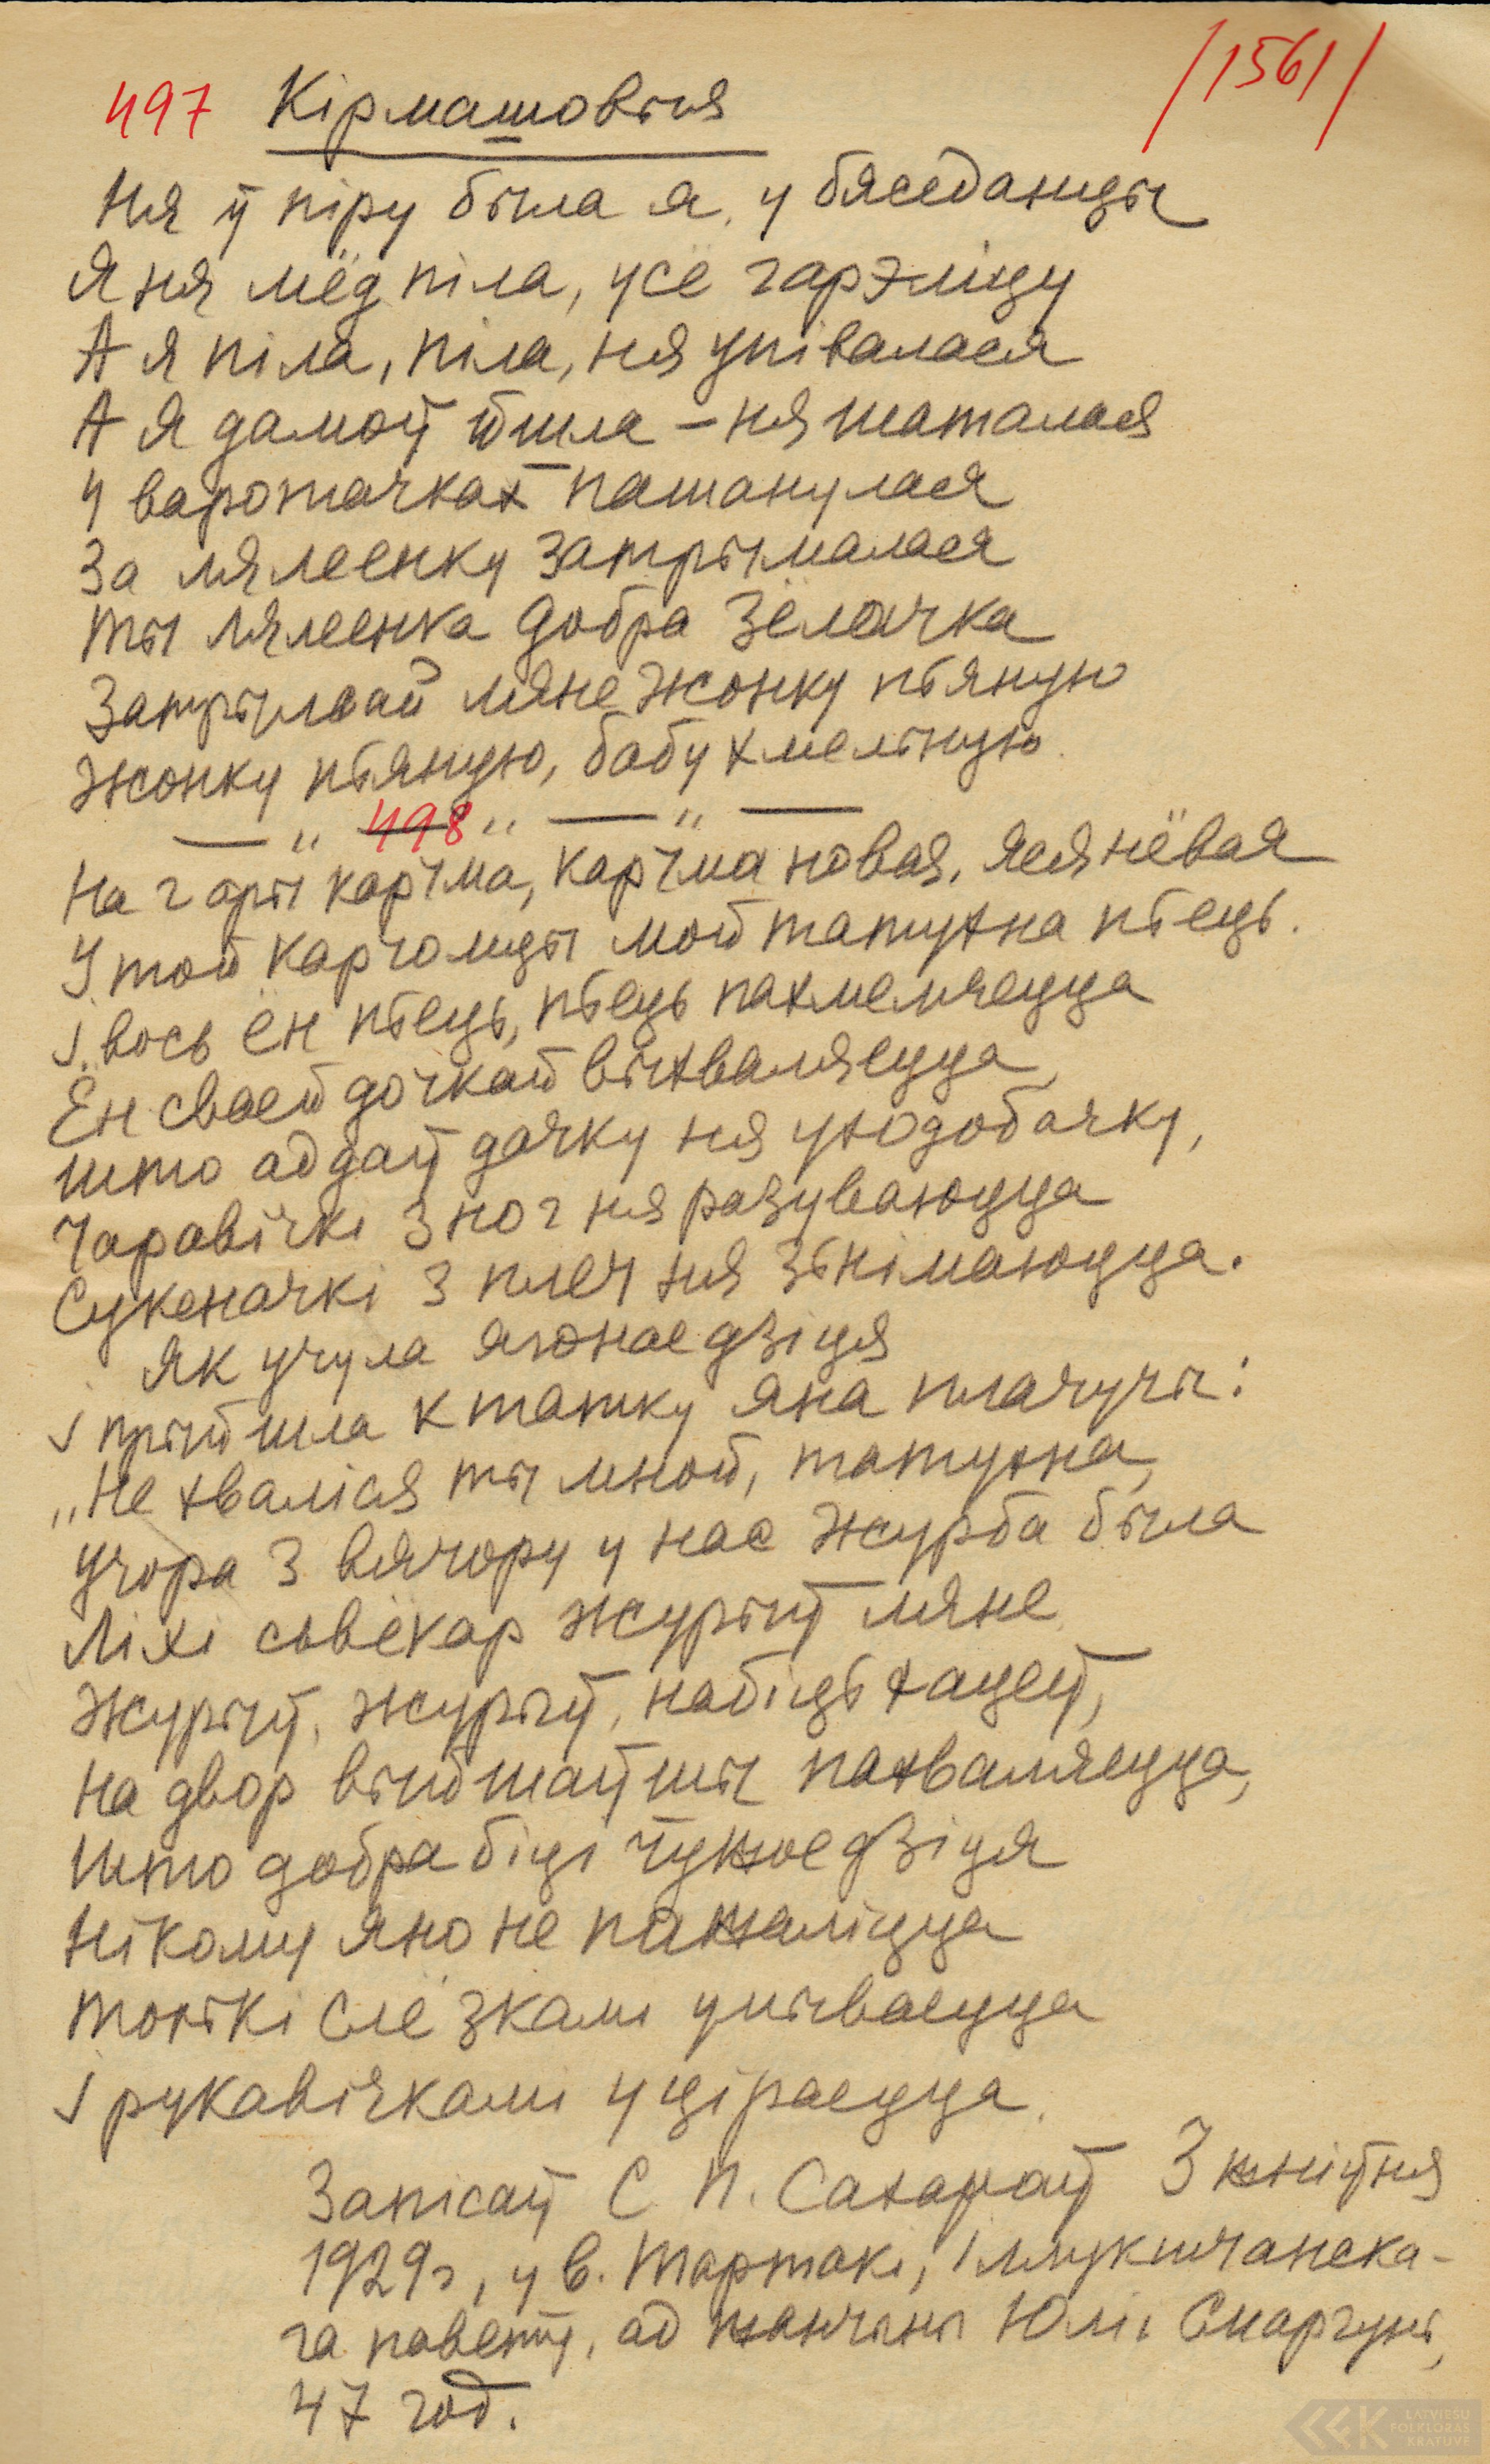 /1561/
497 Кірмашовыя
Ня ў піру была я, у бясёданцы
Я ня мёд піла, усё гарэліцу
А я піла, піла, ня упівалася
А я дамоў йшла – ня шаталася
У вароточках пашанулася
За лялеенку затрымалася
Ты лялеенка добра зёлачка
Затрымай мяне жонку пьяную
Жонку пьяную, бабу хмельную.
— „ 498 „ — „ —
На гары карчма, карчма новая, ясянёвая
У той карчомцы мой татухна пьець.
І вось ён пьець, пьець пахмеляецца
Ён сваей дочкай выхваляецца
што аддаў дачку ня уходобачку,
Чаравічкі з ног ня разуваюцца
Сукеначкі з плеч ня зьнімаюцца.
Як учула ягонае дзіця
І прыйшла к татку яна плачучы:
„Не хваліся ты мной, татухна,
Учора з вячору у нас журба была
Ліхі сьвёкар журыў мяне
Журыў, журыў, набіць хацеў,
На двор выйшаўшы пахваляецца,
Што добра біці чужое дзіця
Нікому яно не пажаліцца
Толькі слёзкамі умываецца
І рукавічкамі уціраецца.
Запісаў С. П. Сахараў 3 жніўня
1929г, у в. Тартакі, Ілмукштчанска-
га павету, ад жанчыны Юлі Снаргуні,
47 год.
LATVIEŠU
FOLKLORAS
KRĀTUVE